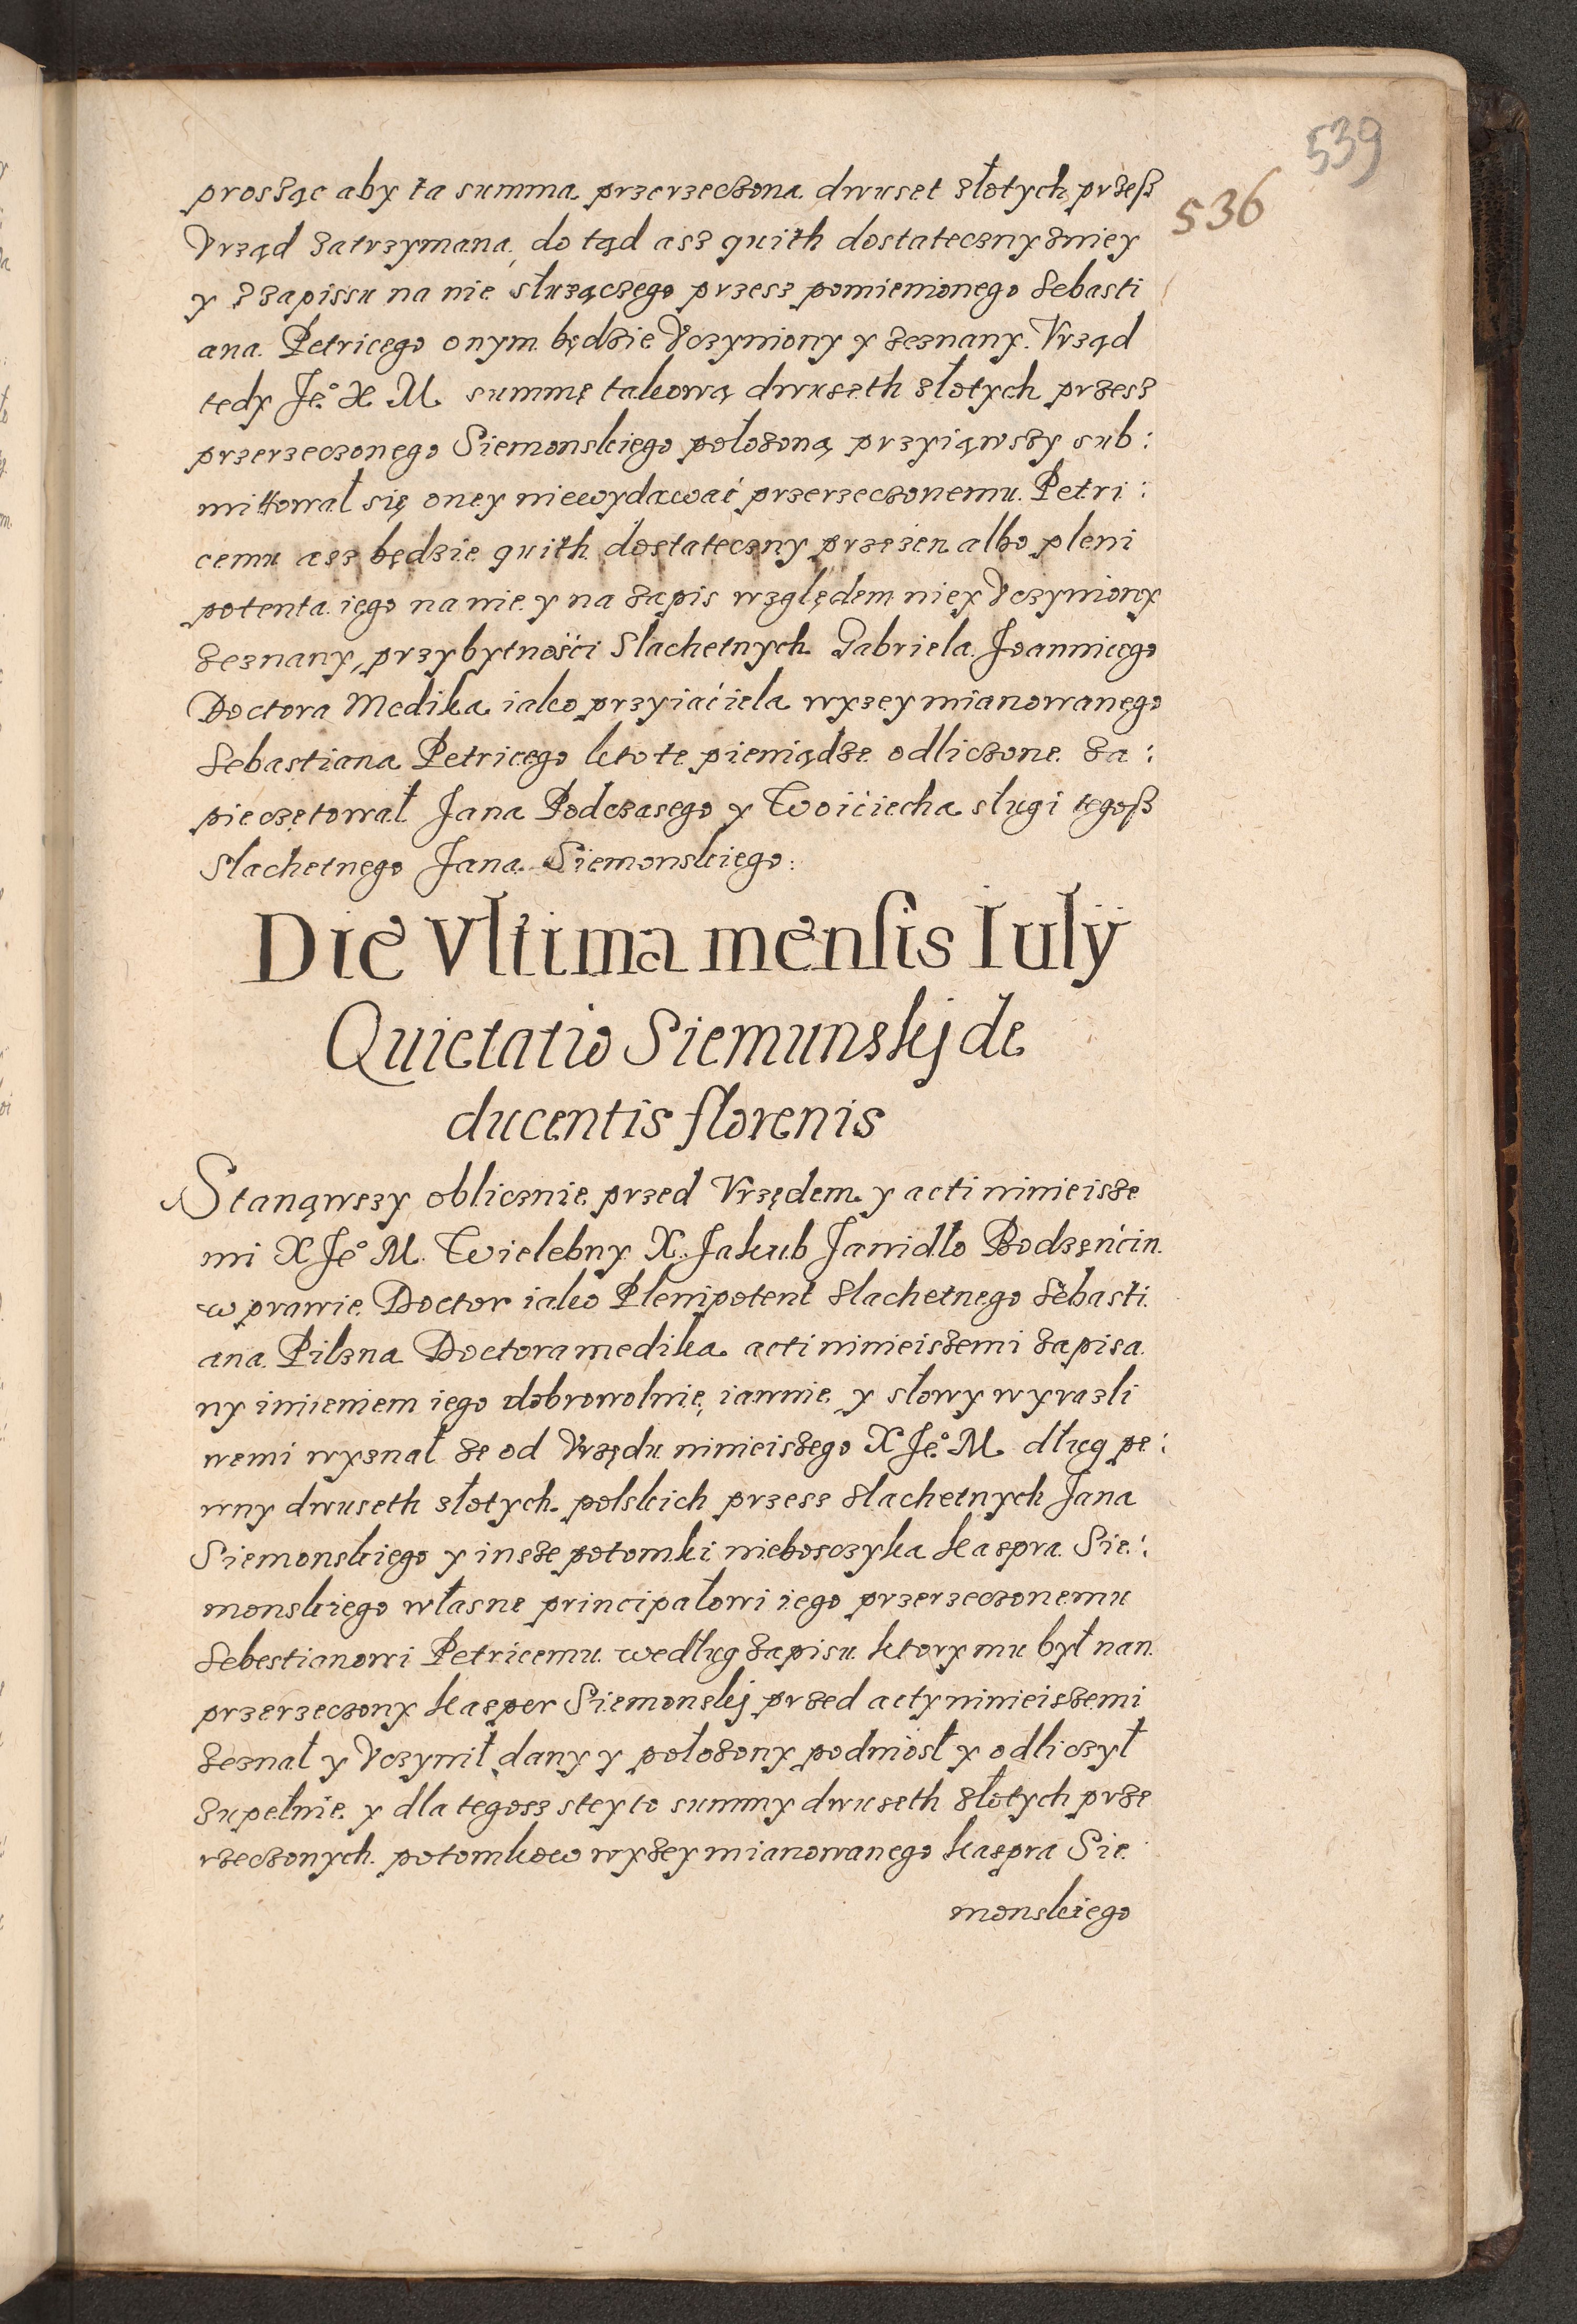 539
536
proszącaby ta summa przerzeczona dwuset złotych przeß
Vrząd zatrzymana, do tąd asz quith dostateczny zniey
y z zapissu na nie służączego przesz pomienionego Sebasti
ana Petricego onym będzie Vczyniony y zeznany. Vrząd
tedy Je° X M summę takową dwuseth złotych przesz
przerzeczonego Siemonskiego położoną przyiąwszy sub:
mittował się oney niewydawać przerzeczonemu Petri:
cemu asz będzie quith dostateczny przezen albo pleni
potenta iego na nie y na zapis względem niey Vczyniony
zeznany, przybytności Slachetnych Gabriela Joannicego
Doctora Medika iako przyiaćiela wyzey mianowanego
Sebastiana Petricego kto te pieniądze odliczone za:
pieczętował Jana Podczasego y Woićiecha sługi tegoß
Slachetnego Jana Siemonskiego:
Die Vltima mensis Iulÿ
Quietatio Siemunskj de
ducentis florenis
Stanąwszy oblicznie przed Vrzędem y acti ninieisze
mi X Je° M. Wielebny X. Jakub Janidło Bodzęńcin
w prawie Doctor iako Plenipotent Slachetnego Sebasti
ana Pilzna Doctora medika acti ninieiszemi zapisa
ny imieniem iego dobrowolnie, iawnie y słowy wyrazli
wemi wyznał ze od Vrzędu ninieiszego X Je° M dług pe:
wny dwuseth złotych polskich przesz Slachetnych Jana
Siemonskiego y insze potomki nieboszczyka Kaspra Sie:
monskiego własne principałowi iego przerzeczonemu
Sebestianowi Petricemu według zapisu ktory mu był nan
przerzeczony Kasper Siemonskj przed acty ninieiszemi
zeznał y Vczynił dany y położony podniósł y odliczył
zupełnie y dla tegosz stey to summy dwuseth złotych prze
rzeczonych potomkow wyzey mianowanego Kaspra Sie
monskiego